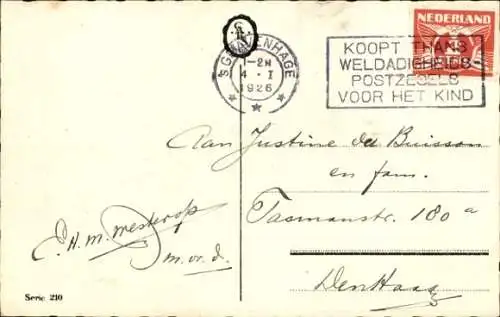 NEDERLAND
'S GRAVENHAGE
1-2N
4 · I
1926
KOOPT THANS
WELDADIGHEIDS-
POSTZEGELS
VOOR HET KIND
Aan Justine du Buisson
en fam.
Tasmanstr. 180 a
Den Haag
C.H.M. Westerop
m.v.d.
Serie 210